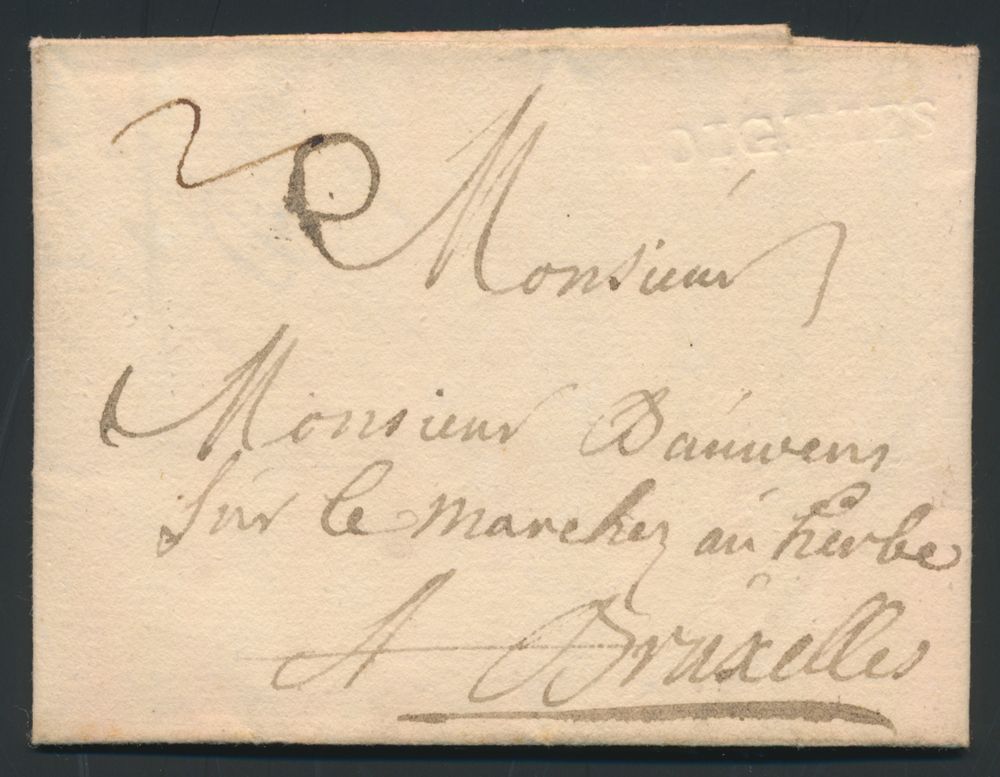 Monsieur
Monsieur Dauwens
Sur le marchez au herbe
A Bruxelles